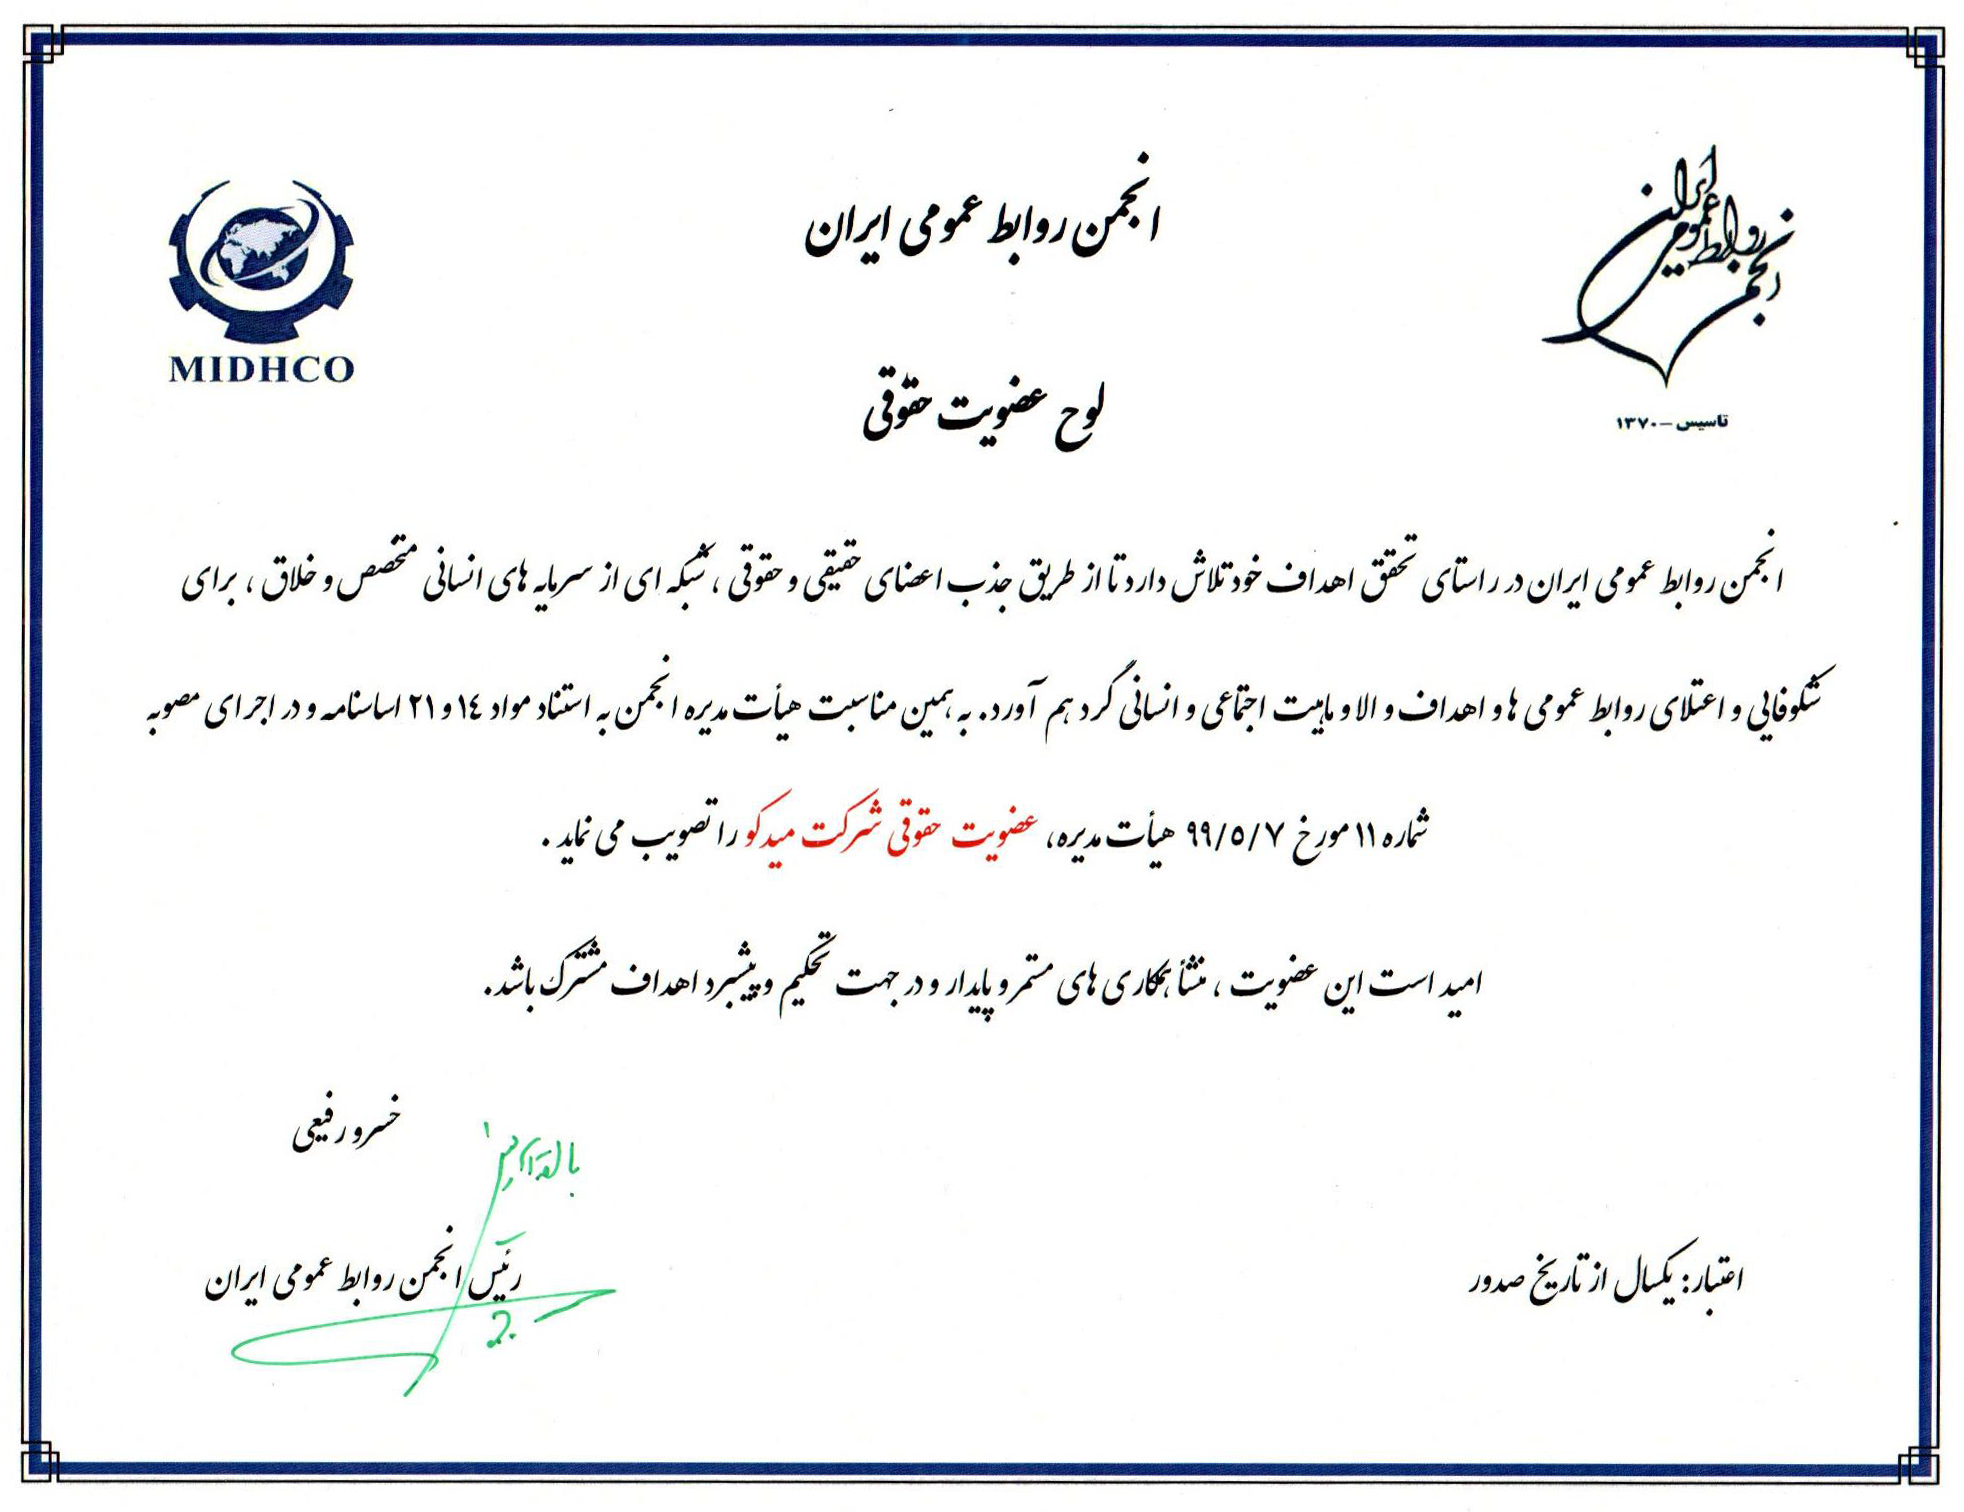 انجمن روابط عمومی ایران
انجمن روابط عمومی ایران
تاسیس - ۱۳۷۰
MIDHCO
لوح عضویت حقوقی
انجمن روابط عمومی ایران در راستای تحقق اهداف خود تلاش دارد تا از طریق جذب اعضای حقیقی و حقوقی ، شبکه ای از سرمایه های انسانی متخصص و خلاق ، برای
شکوفایی و اعتلای روابط عمومی ها و اهداف و الا و ماهیت اجتماعی و انسانی گرد هم آورد. به همین مناسبت هیأت مدیره انجمن به استناد مواد ۱۴ و ۲۱ اساسنامه و در اجرای مصوبه
شماره ۱۱ مورخ ۹۹/۵/۷ هیأت مدیره، عضویت حقوقی شرکت میدکو را تصویب می نماید .
امید است این عضویت ، منشأ همکاری های مستمر و پایدار و در جهت تحکیم و پیشبرد اهداف مشترک باشد.
خسرو رفیعی
رئیس انجمن روابط عمومی ایران
اعتبار: یکسال از تاریخ صدور